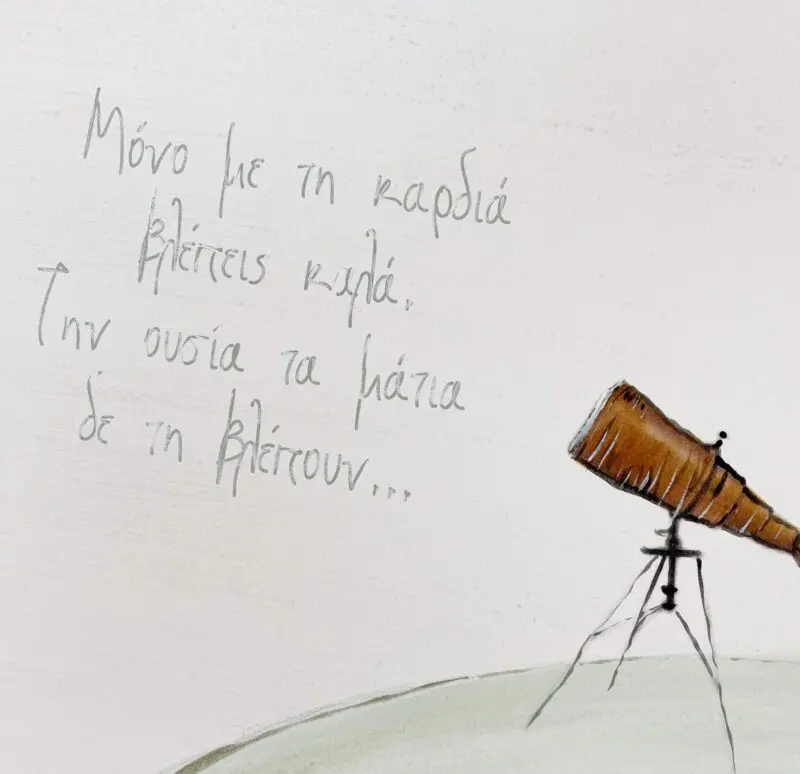 Μόνο με τη καρδιά
βλέπεις καλά.
Την ουσία τα μάτια
δε τη βλέπουν...